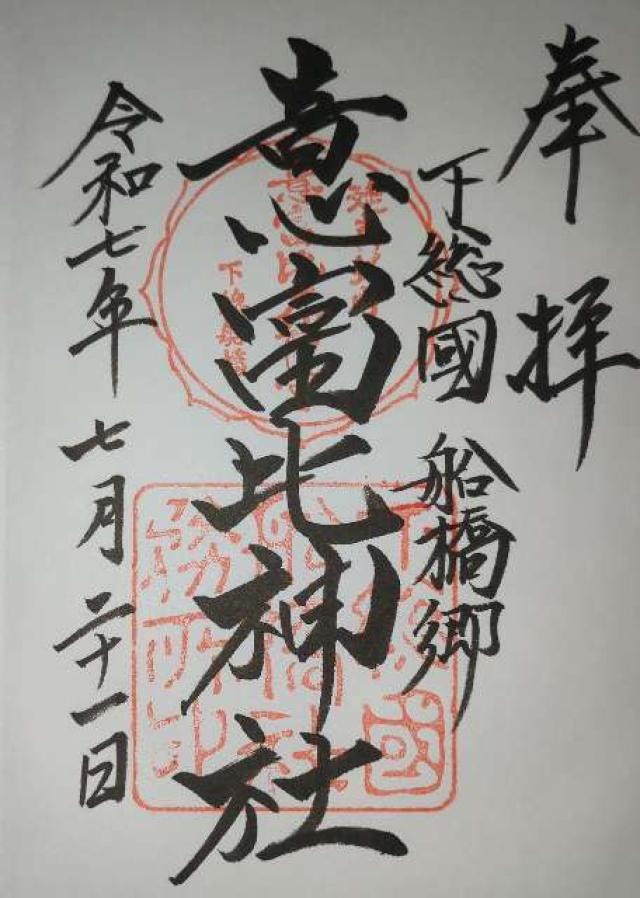 奉拝
下総國 船橋郷
意富比神社
令和七年 七月 二十一日